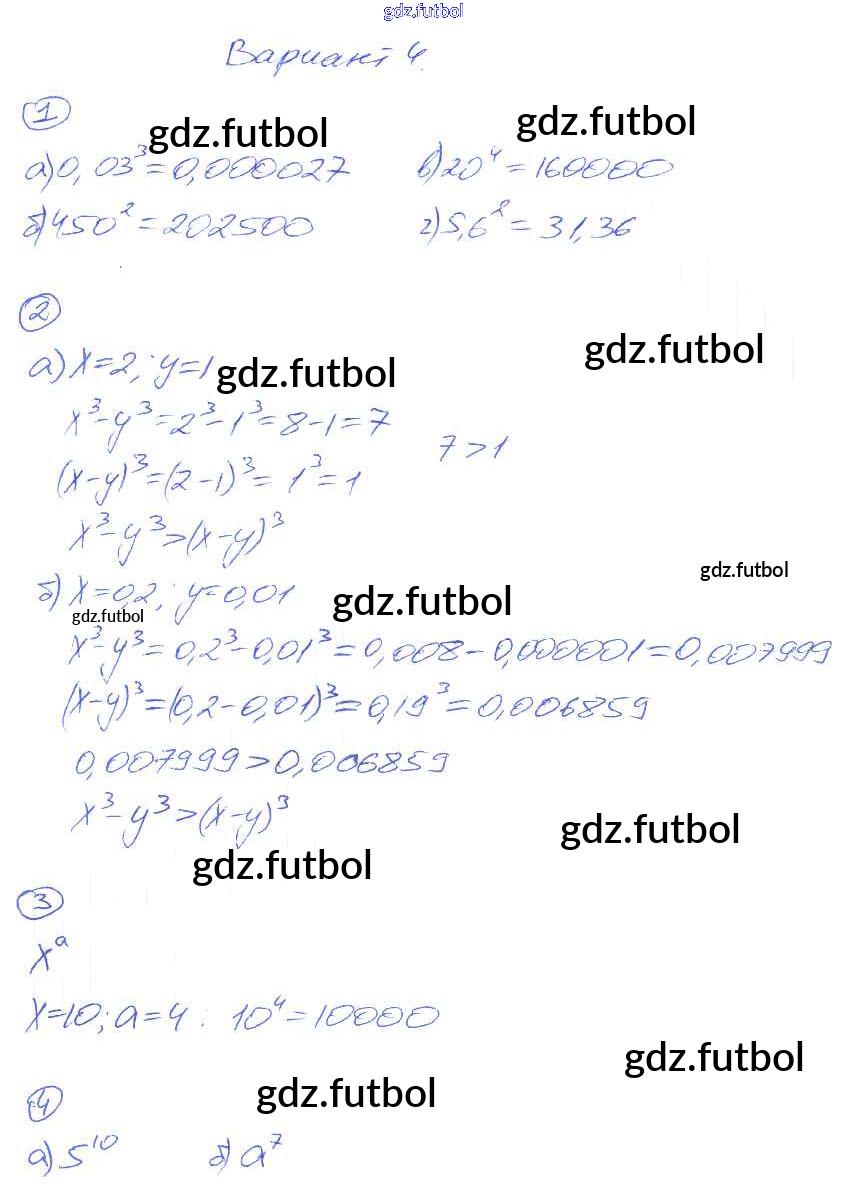 gdz.futbol
Вариант 4.
1
gdz.futbol gdz.futbol
а) 0,03³=0,000027 в) 20⁴=160000
б) 450²=202500 г) 5,6²=31,36
2
gdz.futbol
а) x=2; y=1 gdz.futbol
x³-y³=2³-1³=8-1=7
7>1
(x-y)³=(2-1)³=1³=1
x³-y³>(x-y)³
gdz.futbol
б) x=0,2; y=0,01 gdz.futbol
gdz.futbol
x³-y³=0,2³-0,01³=0,008-0,000001=0,007999
(x-y)³=(0,2-0,01)³=0,19³=0,006859
0,007999>0,006859
x³-y³>(x-y)³
gdz.futbol
gdz.futbol
3
xᵃ
x=10; a=4: 10⁴=10000
gdz.futbol
gdz.futbol
4
а) 5¹⁰ б) a⁷